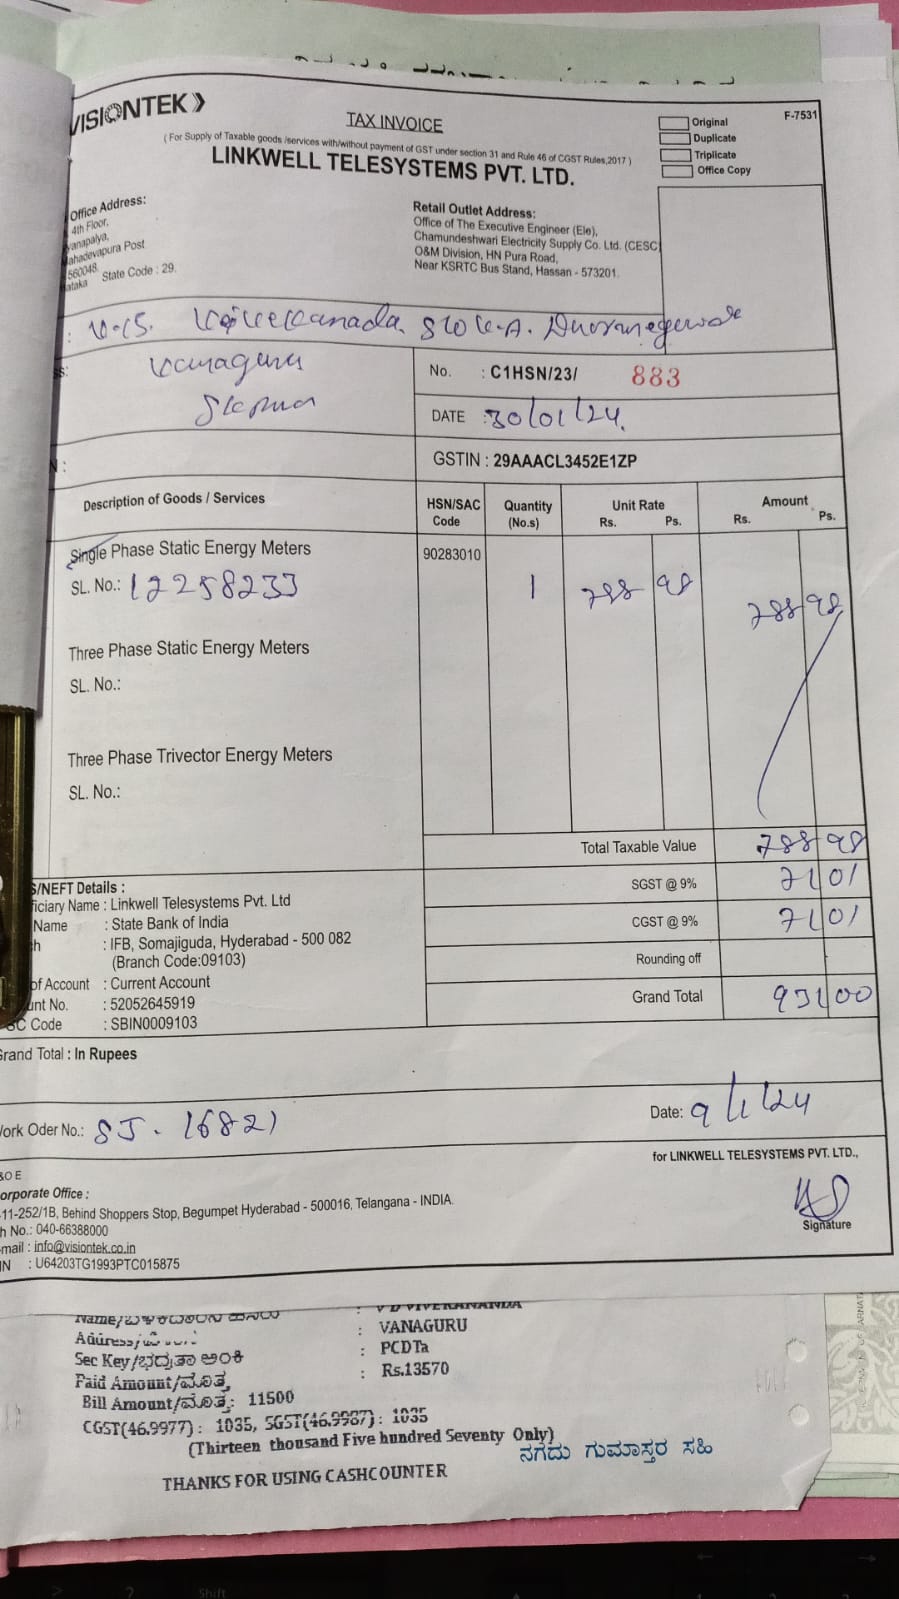 VISIONTEK
TAX INVOICE
Original
Duplicate
Triplicate
Office Copy
F-7531
( For Supply of Taxable goods /services with/without payment of GST under section 31 and Rule 46 of CGST Rules,2017 )
LINKWELL TELESYSTEMS PVT. LTD.
Office Address:
4th Floor,
vanapalya,
ahadevapura Post
560048.
ataka State Code : 29.
Retail Outlet Address:
Office of The Executive Engineer (Ele),
Chamundeshwari Electricity Supply Co. Ltd. (CESC)
O&M Division, HN Pura Road,
Near KSRTC Bus Stand, Hassan - 573201.
ss: Vanaguru
No. : C1HSN/23/ 883
DATE : 30/01/24.
N :
GSTIN : 29AAACL3452E1ZP
Description of Goods / Services
HSN/SAC Code
Quantity (No.s)
Unit Rate
Rs. Ps.
Amount
Rs. Ps.
Single Phase Static Energy Meters 90283010
SL. No.: 12258233 1 788 98 788 98
Three Phase Static Energy Meters
SL. No.:
Three Phase Trivector Energy Meters
SL. No.:
Total Taxable Value 788 98
SGST @ 9% 71 01
CGST @ 9% 71 01
Rounding off
Grand Total 931 00
S/NEFT Details :
iciary Name : Linkwell Telesystems Pvt. Ltd
Name : State Bank of India
h : IFB, Somajiguda, Hyderabad - 500 082
(Branch Code:09103)
of Account : Current Account
unt No. : 52052645919
SC Code : SBIN0009103
Grand Total : In Rupees
Work Oder No.: SJ - 16821
Date: 9/1/24
for LINKWELL TELESYSTEMS PVT. LTD.,
&O E
orporate Office :
11-252/1B, Behind Shoppers Stop, Begumpet Hyderabad - 500016, Telangana - INDIA.
h No.: 040-66388000
mail : info@visiontek.co.in
IN : U64203TG1993PTC015875
Signature
Name/ : V D VIVEKANANDA
Address/ : VANAGURU
Sec Key/ಭದ್ರತಾ ಅಂಕಿ : PCDTa
Paid Amount/ಮೊತ್ತ : Rs.13570
Bill Amount/ಮೊತ್ತ: 11500
CGST(46.9977): 1035, SGST(46.9987): 1035
(Thirteen thousand Five hundred Seventy Only)
ನಗದು ಗುಮಾಸ್ತರ ಸಹಿ
THANKS FOR USING CASHCOUNTER